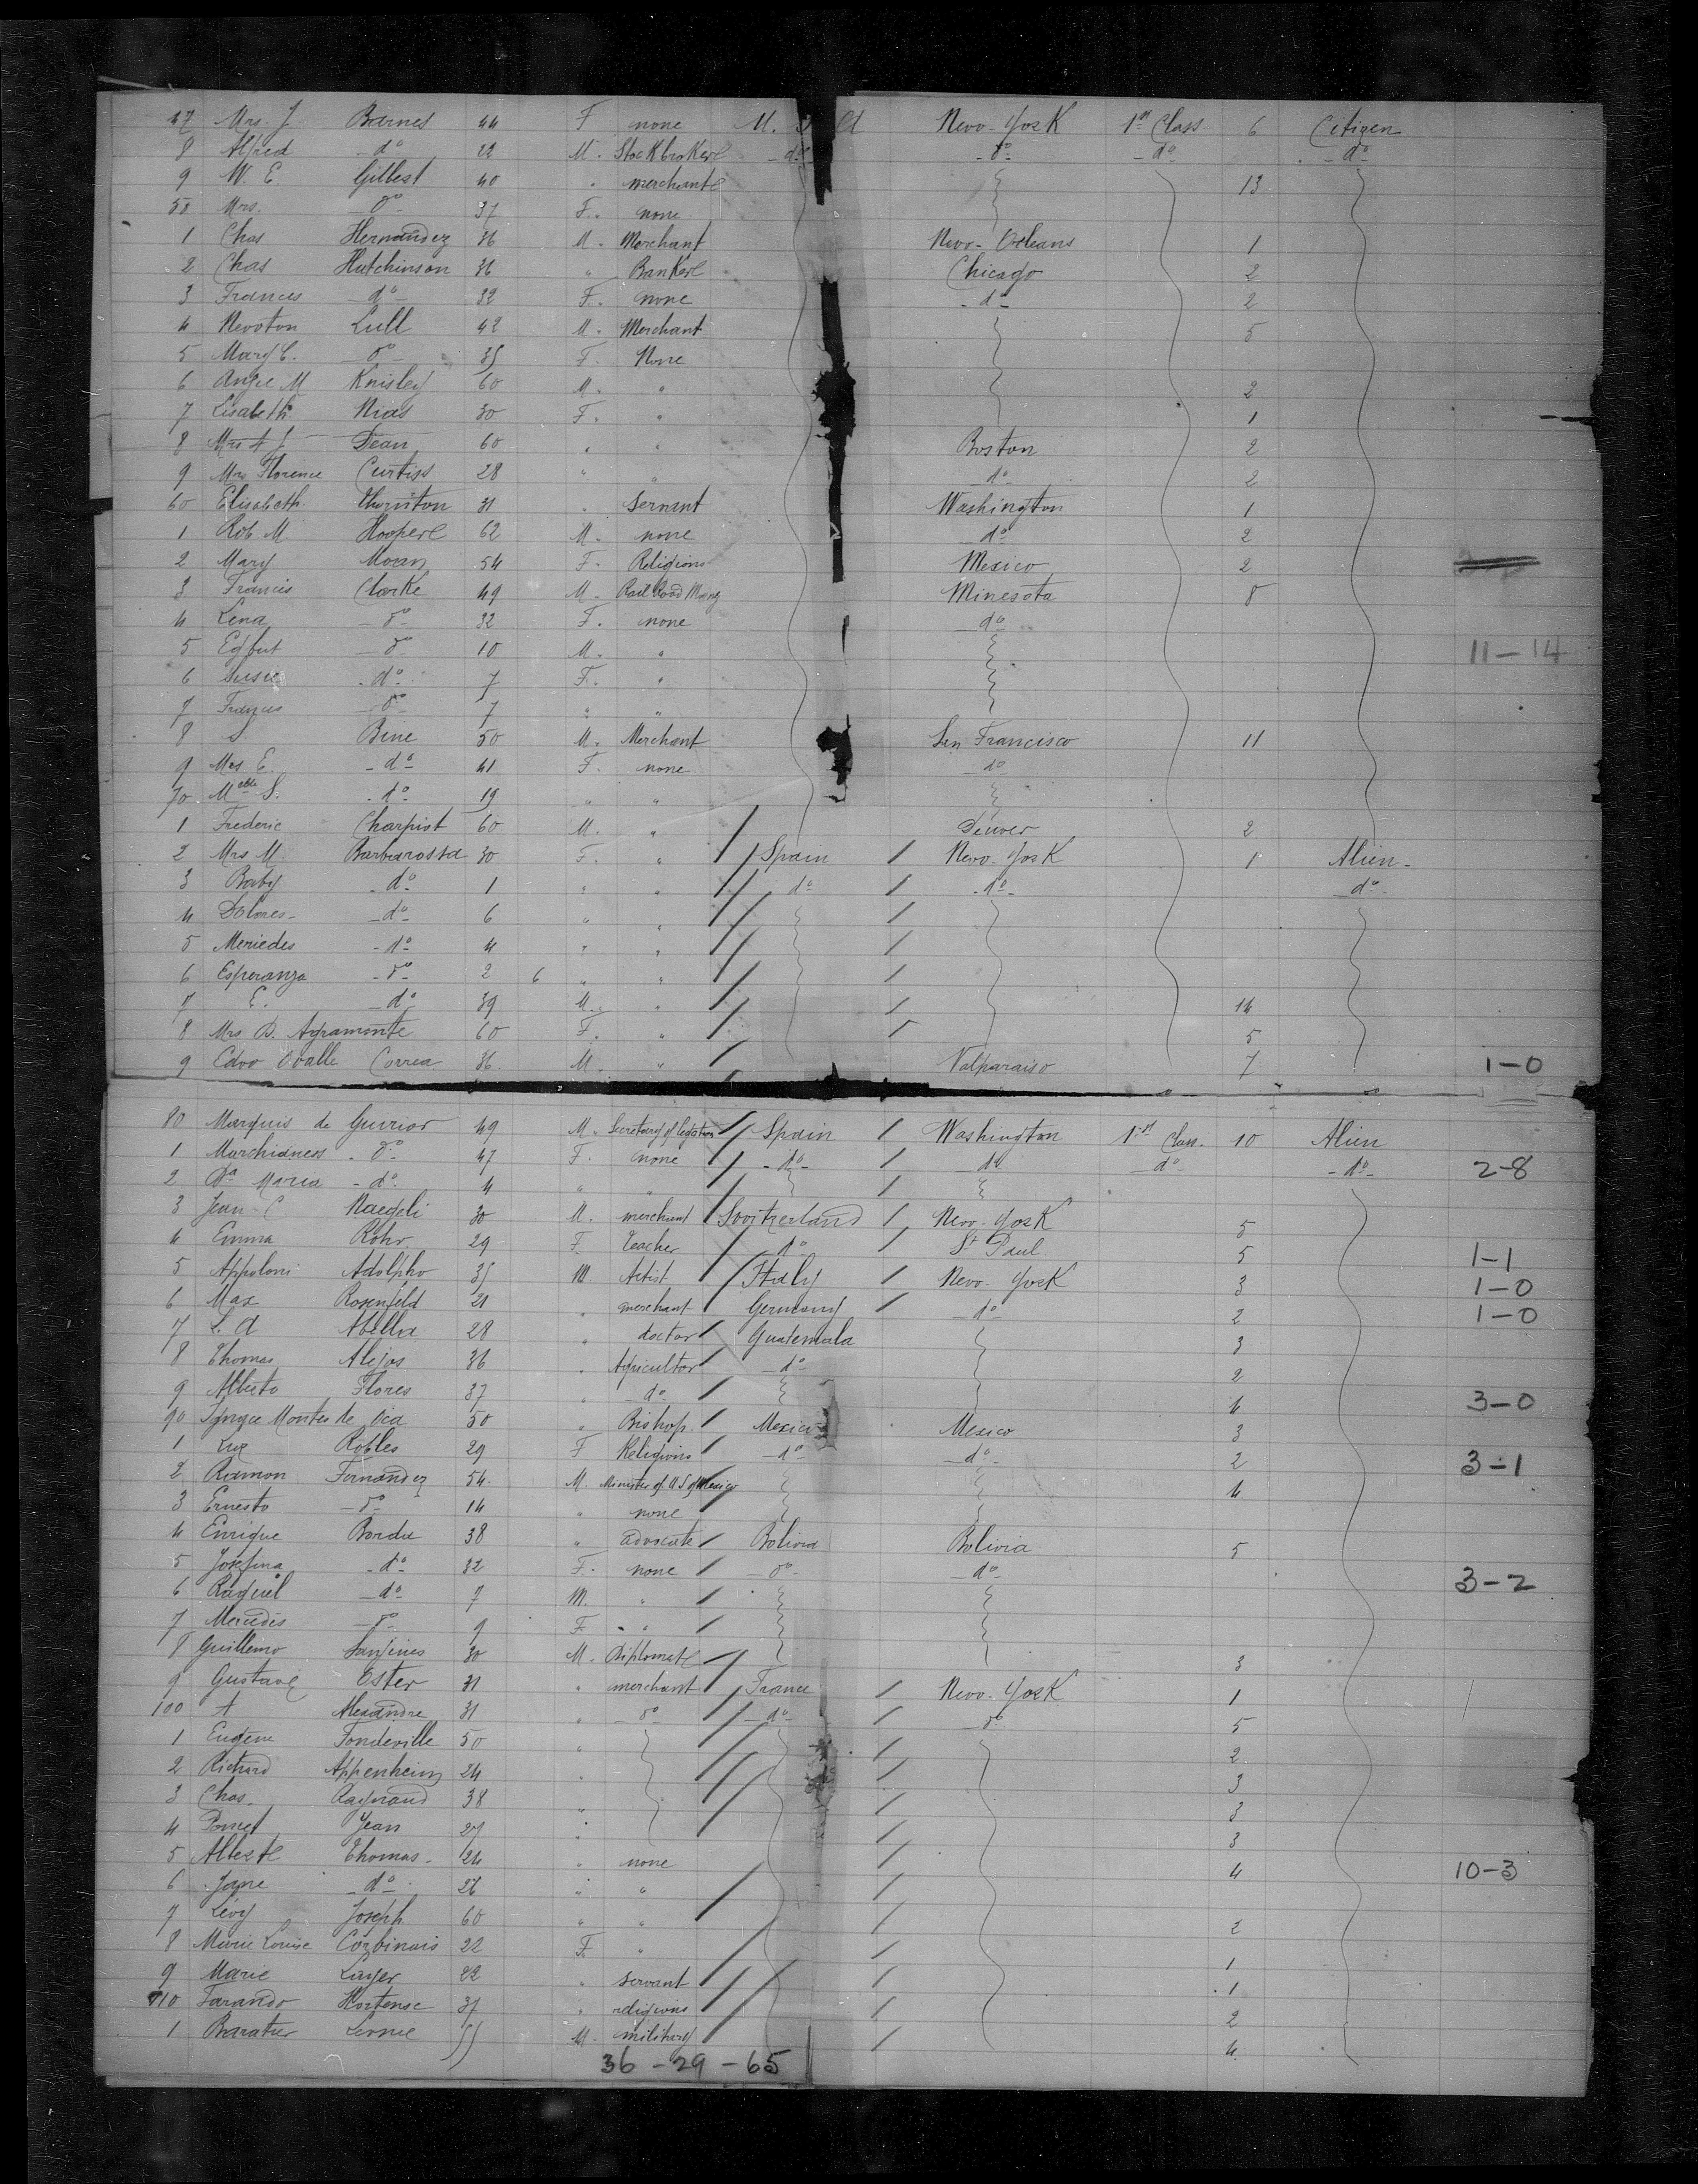 47 Mrs. J Barnes 44 F none U. S A New-York 1st Class 6 Citizen
8 Alfred do 22 M. Stockbroker do do do do
9 W. E Gilbert 40 " merchant 13
50 Mrs. do 37 F. none
1 Chas Hernandez 36 M. Merchant New-Orleans 1
2 Chas Hutchinson 36 " Banker Chicago 2
3 Frances do 32 F. none do 2
4 Newton Lull 42 M. Merchant 5
5 Mary C. do 35 F. None
6 Angie M Knisley 60 M. " 2
7 Lisabeth Nias 30 F. " 1
8 Mrs A J Dean 60 " " Boston 2
9 Mrs Florence Curtiss 28 " " do 2
60 Elisabeth Thornton 31 " Servant Washington 1
1 Rob. M Hooper 62 M. none do 2
2 Mary Moran 54 F. Religions Mexico 2
3 Francis Clarke 49 M. Rail Road Mang Minesota 8
4 Lena do 32 F. none do
5 Egbut do 10 M. " 11-14
6 Susie do 7 F. "
7 Frances do 7 " "
8 S Bine 50 M. Merchant San Francisco 11
9 Mrs E do 41 F. none do
70 Melle S. do 19 " "
1 Frederic Charpiot 60 M. " Denver 2
2 Mrs M Barbarossa 30 F. " Spain New-York 1 Alien
3 Baby do 1 " " do do do
4 Dolores do 6 " "
5 Mericdes do 4 " "
6 Esperanza do 2 6 " "
7 E. do 39 M. " 14
8 Mrs D. Agramonte 60 F. " 5
9 Edvo Ovalle Correa 36 M. " Valparaiso 7 1-0
80 Marquis de Guirior 49 M. Secretary of legation Spain Washington 1st Class. 10 Alien
1 Marchianess do 47 F. none do do do do 2-8
2 Da Maria do 4 " "
3 Jean C Naegeli 30 M. merchant Switzerland New-York 5
4 Emma Rohr 29 F teacher do St Paul 5 1-1
5 Appoloni Adolpho 35 M Artist Italy New-York 3 1-0
6 Max Rosenfeld 21 " merchant Germany do 2 1-0
7 L. A Abella 28 " doctor Guatemala 3
8 Thomas Alejos 36 " Agricultor do 2
9 Alberto Flores 37 " do 4 3-0
90 Ignace Montes de Oca 50 " Bishop. Mexico Mexico 3
1 Luz Robles 29 F Religions do do 2 3-1
2 Ramon Fernandez 54 M. Minister of U S of Mexico 4
3 Ernesto do 14 " none
4 Enrique Borda 38 " advocate Bolivia Bolivia 5
5 Josefina do 32 F. none do do
6 Raquel do 7 M. " 3-2
7 Mercedes do 9 F. "
8 Guillemo Sanjines 30 M. Diplomate 3
9 Gustave Ester 31 " merchant France New-York 1
100 A Alexandre 31 " do do do 5
1 Eugene Fondeville 50 " 2
2 Richard Appenheim 24 " 3
3 Chas. Raynaud 38 " 3
4 Pomet Jean 27 " 3
5 Albert Thomas 24 " none 4 10-3
6 Jane do 26 " "
7 Levy Joseph 60 " " 2
8 Marie Louise Corbinais 22 F. " 1
9 Marie Layer 22 " servant 1
110 Farando Hortense 37 " religions 2
1 Baratier Leonie 55 M. military 4
36 - 29 - 65